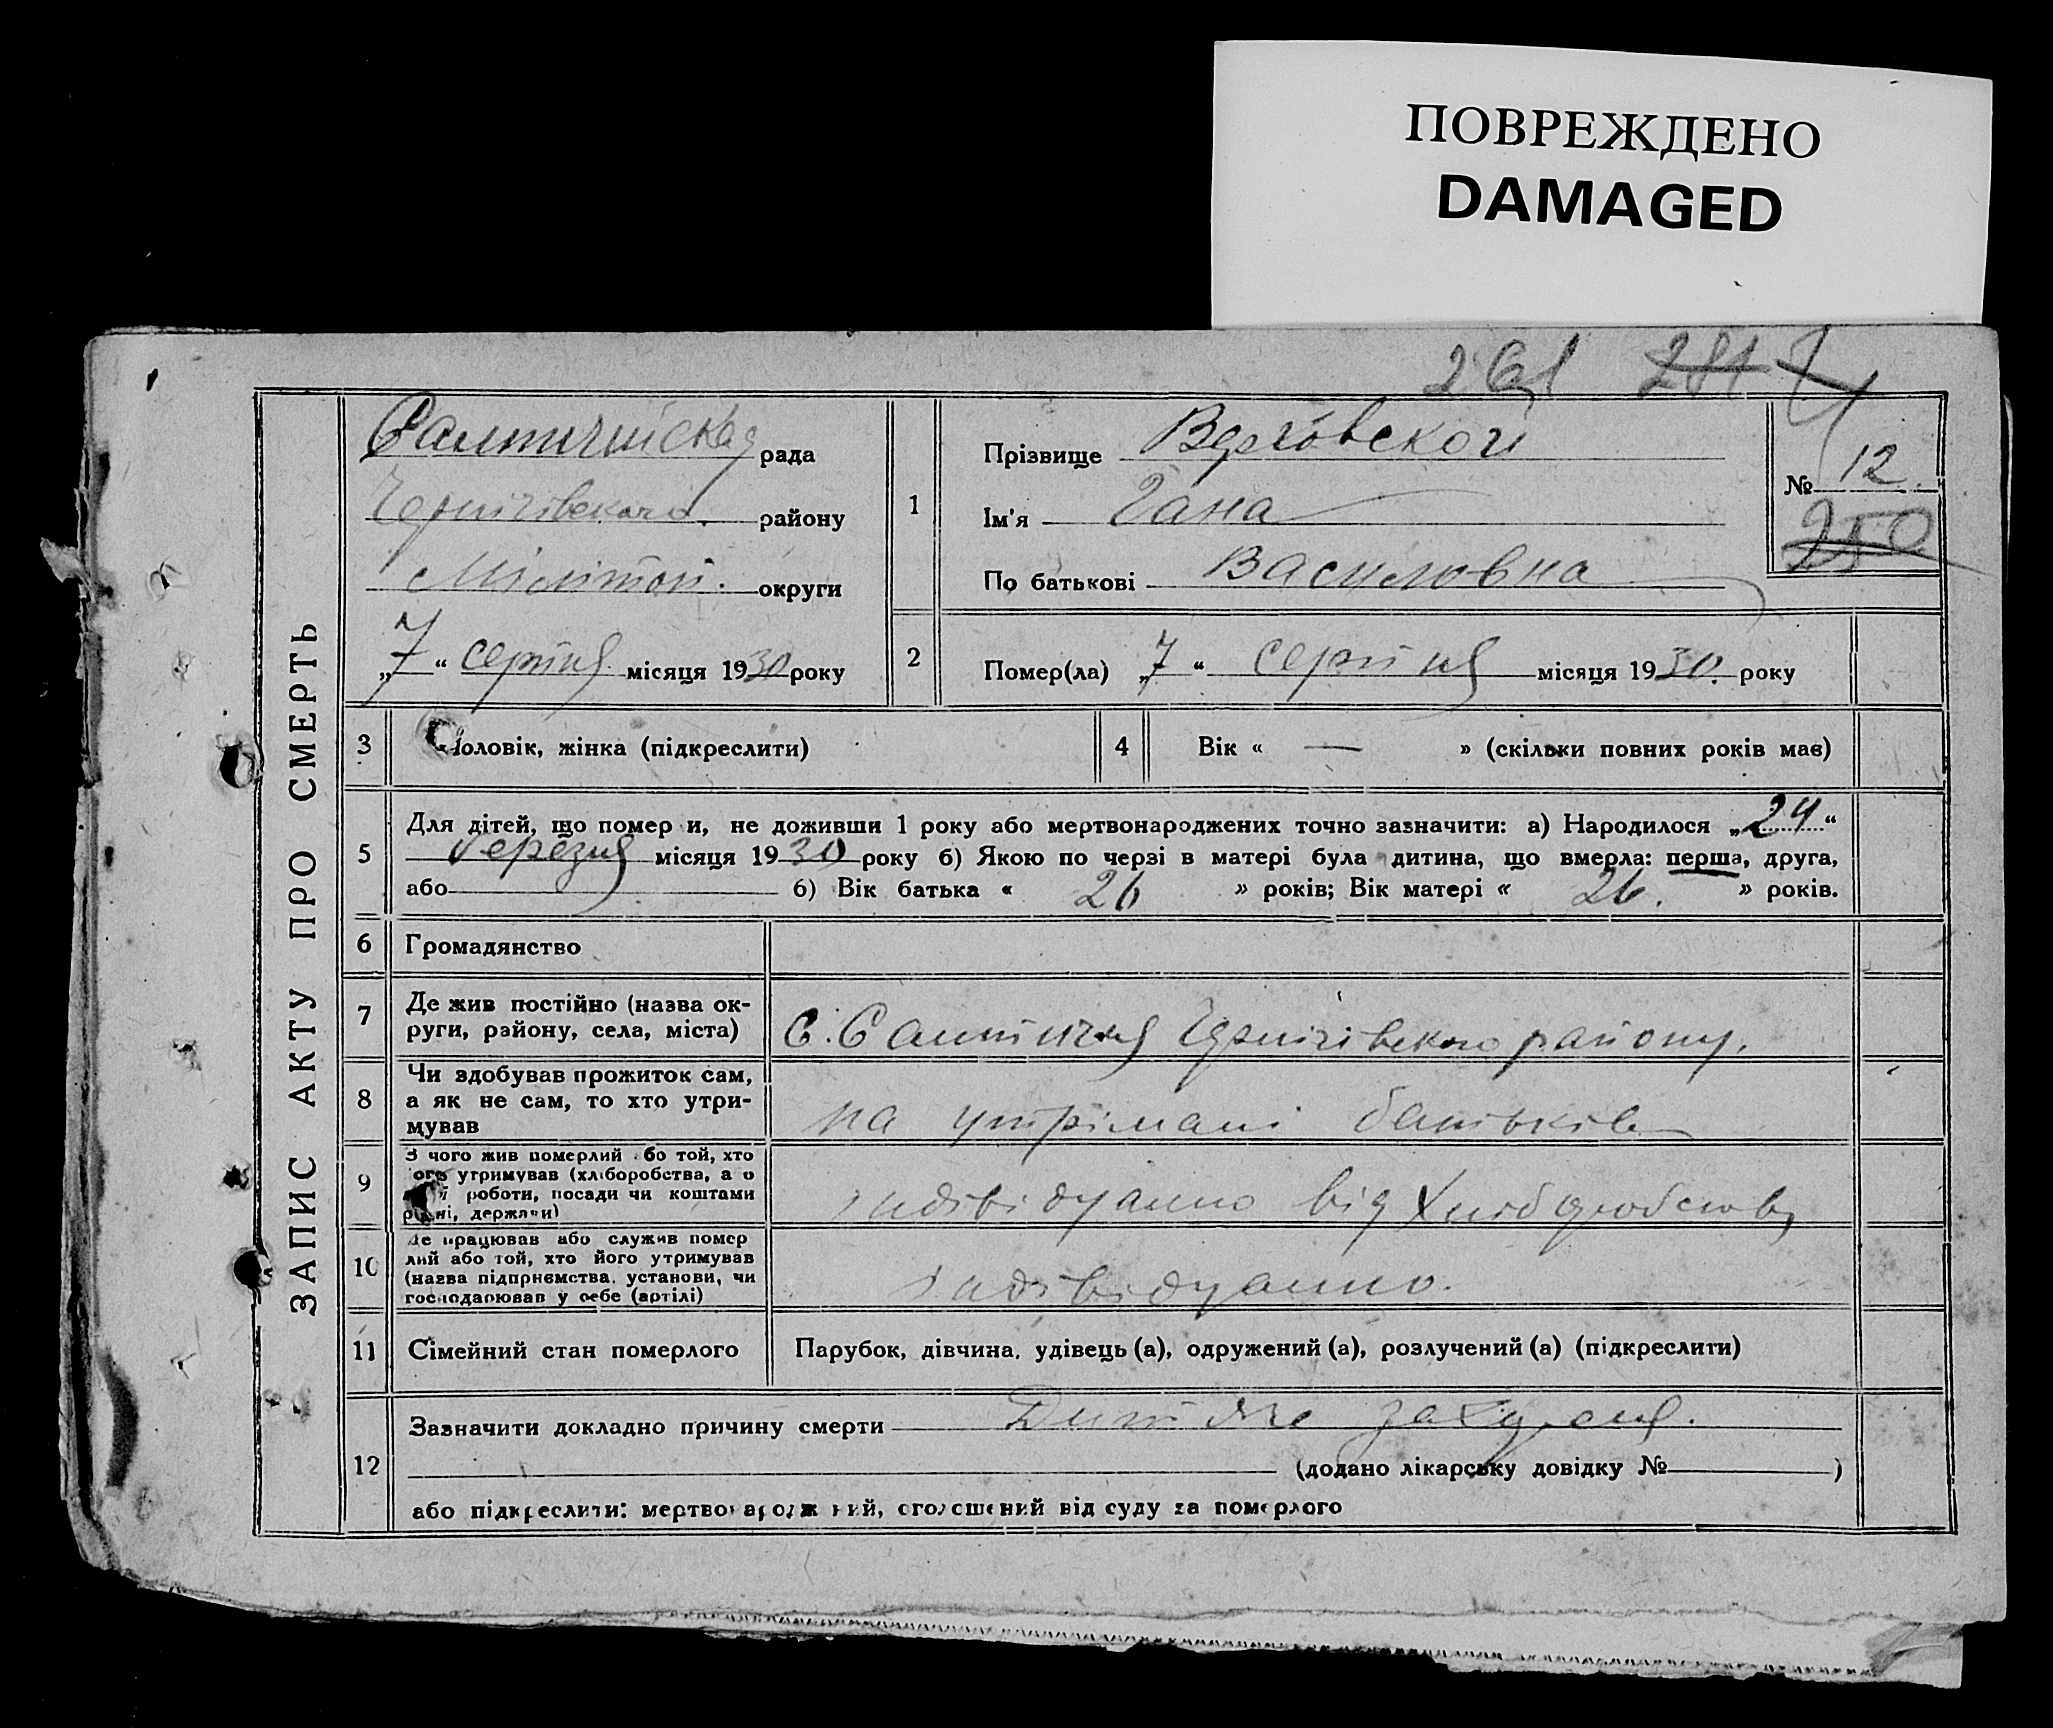 ПОВРЕЖДЕНО
DAMAGED
261 281
ЗАПИС АКТУ ПРО СМЕРТЬ
Салтичийская рада
Чернігівского району
Мелітоп. округи
„7“ серпня місяця 1930 року
1
Прізвище
Ім'я Гана
По батькові Василовна
№ 12.
250
2
Помер(ла) „7“ серпня місяця 1930. року
3 Чоловік, жінка (підкреслити)
4 Вік « — » (скільки повних років має)
5
Для дітей, що померли, не доживши 1 року або мертвонароджених точно зазначити: а) Народилося „24“
березня місяця 1930 року б) Якою по черзі в матері була дитина, що вмерла: перша, друга,
або б) Вік батька « 26 » років; Вік матері « 26. » років.
6 Громадянство
7
Де жив постійно (назва ок-
руги, району, села, міста)
С. Салтичия Чернігівского району.
8
Чи здобував прожиток сам,
а як не сам, то хто утри-
мував
на утрімані батьків
9
З чого жив померлий або той, хто
його утримував (хліборобства, а о
роботи, посади чи коштами
рідні, держави)
індівідуално від Хліборобства
10
Де працював або служив помер
лий або той, хто його утримував
(назва підприємства, установи, чи
господарював у себе (артілі)
індівідуално.
11 Сімейний стан померлого
Парубок, дівчина, удівець (а), одружений (а), розлучений (а) (підкреслити)
12
Зазначити докладно причину смерти
(додано лікарську довідку № )
або підкреслити: мертвонароджений, оголошений від суду за померлого